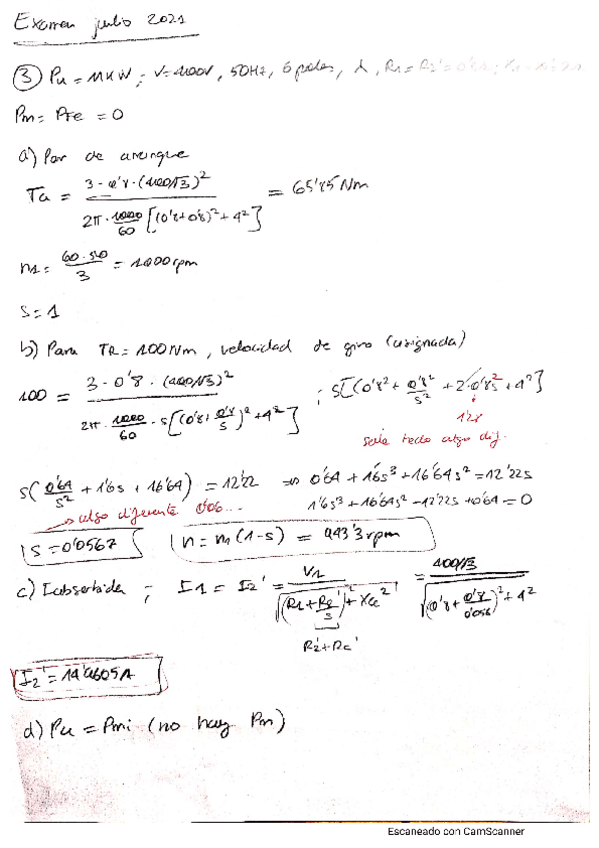 Examen julio 2021
③ Pu = 11 KW ; V = 400V, 50Hz, 6 polos, λ, R1 = R2' = 0'8
Pm = Pfe = 0
a) Par de arranque
Ta = 3 · 0'8 · (400/√3)² / 2π · 1000/60 [(0'8+0'8)² + 4²] = 65'85 Nm
n1 = 60·50 / 3 = 1000 rpm
S = 1
b) Para TR = 100 Nm, velocidad de giro (asignada)
100 = 3 · 0'8 · (400/√3)² / 2π · 1000/60 · s[(0'8 + 0'8/s)² + 4²] ; S[(0'8² + 0'8²/s² + 2·0'8s² + 4²]
1'28
sale todo algo dif.
s(0'64/s² + 1'6s + 16'64) = 12'22 ⇒ 0'64 + 1'6s³ + 16'64s² = 12'22s
→ algo diferente 0'06... 1'6s³ + 16'64s² - 12'22s + 0'64 = 0
s = 0'0567 n = n1 (1-s) = 943'3 rpm
c) Iabsorbida ; I1 = I2' = V1 / √((R1 + R2'/s)² + Xcc²) = 400/√3 / √((0'8 + 0'8/0'056)² + 4²)
R2' + Rc'
I2' = 14'4605 A
d) Pu = Pmi (no hay Pm)
Escaneado con CamScanner